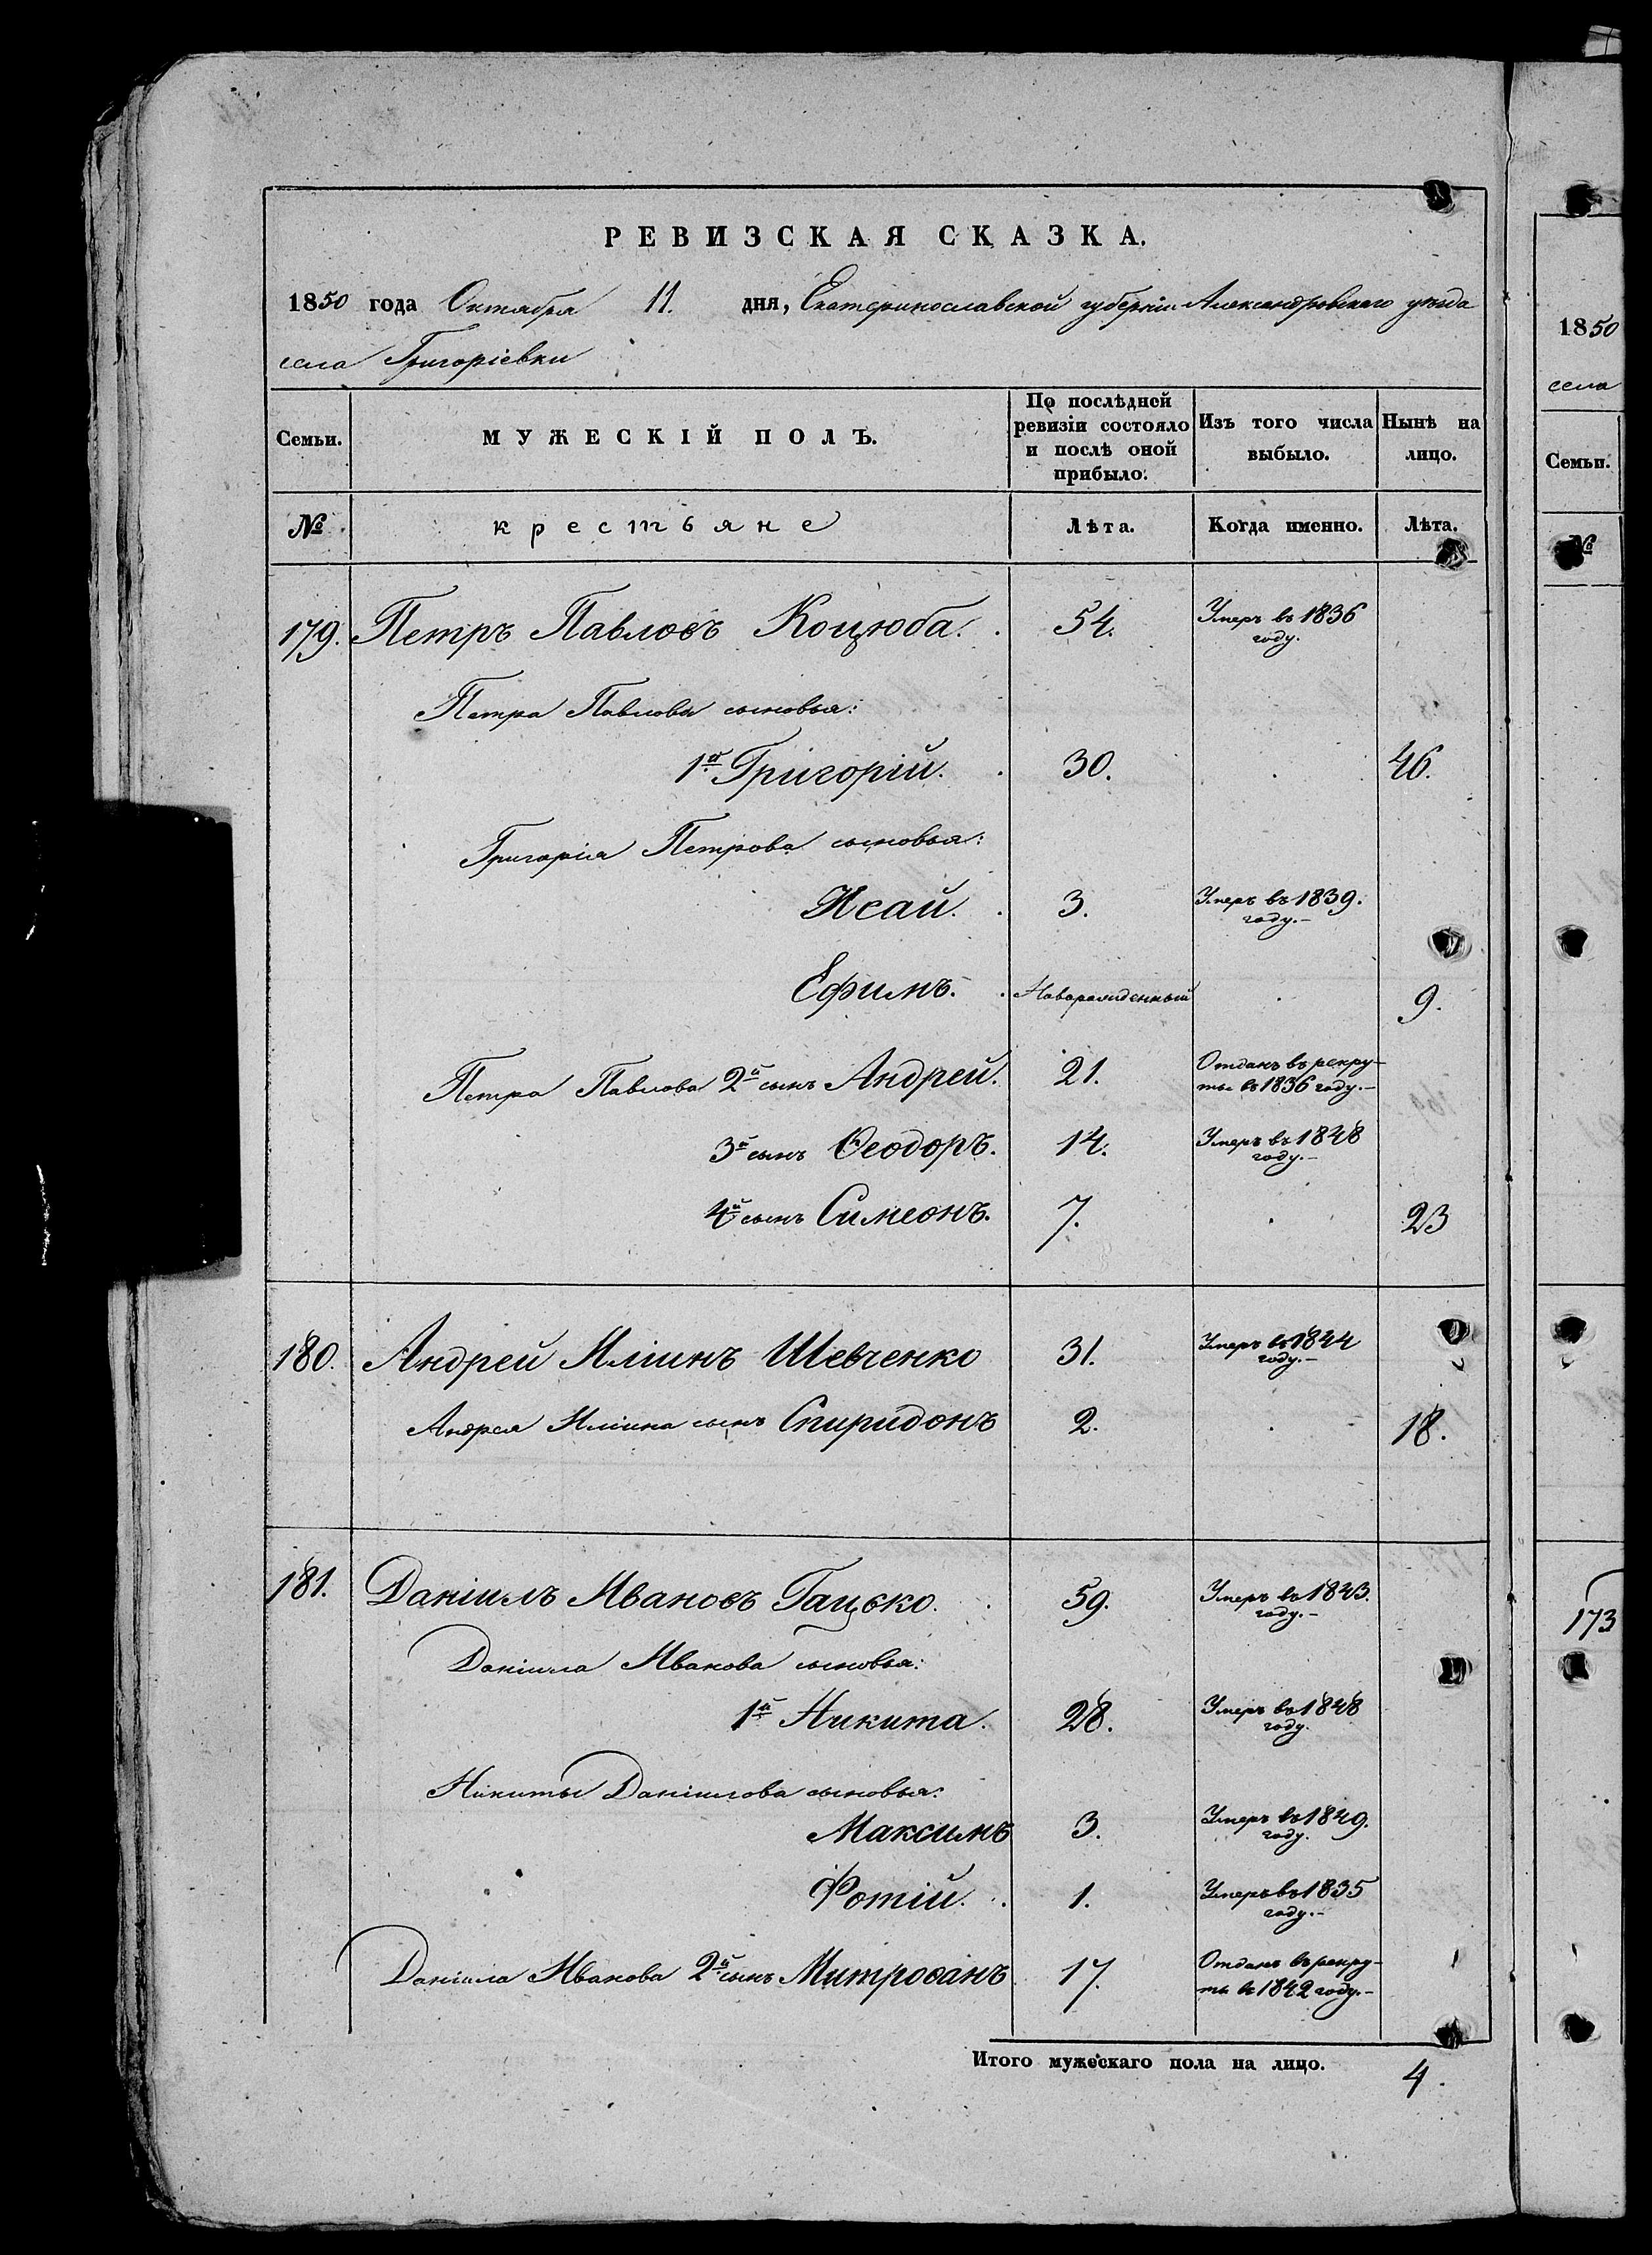 РЕВИЗСКАЯ СКАЗКА.
1850 года Октября 11. дня, Екатеринославской губерніи Александровскаго уѣзда
села Григоріевки
Семьи.
МУЖЕСКІЙ ПОЛЪ.
По послѣдней
ревизіи состояло
и послѣ оной
прибыло.
Изъ того числа
выбыло.
Нынѣ на
лицо.
№
крестьяне
Лѣта.
Когда именно.
Лѣта.
179. Петръ Павловъ Коцюба. 54. Умеръ въ 1836
году.
Петра Павлова сыновья:
1й Григорій. 30. 46.
Григорія Петрова сыновья:
Исай. 3. Умеръ въ 1839.
году.-
Ефимъ. Новорожденный 9.
Петра Павлова 2й сынъ Андрей. 21. Отданъ въ рекру-
ты въ 1836 году.-
3й сынъ Ѳеодоръ. 14. Умеръ въ 1848
году.-
4й сынъ Симеонъ. 7. 23
180. Андрей Ильинъ Шевченко 31. Умеръ въ 1844
году.-
Андрея Ильина сынъ Спиридонъ 2. 18.
181. Даніилъ Ивановъ Гацько. 59. Умеръ въ 1843.
году.-
Даніила Иванова сыновья:
1й Никита. 28. Умеръ въ 1848
году.
Никиты Даніилова сыновья:
Максимъ 3. Умеръ въ 1849.
году.
Фотій. 1. Умеръ въ 1835
году.-
Даніила Иванова 2й сынъ Митрофанъ 17. Отданъ въ рекру-
ты въ 1842 году.-
Итого мужескаго пола на лицо. 4.
1850
села
Семьи.
№
173